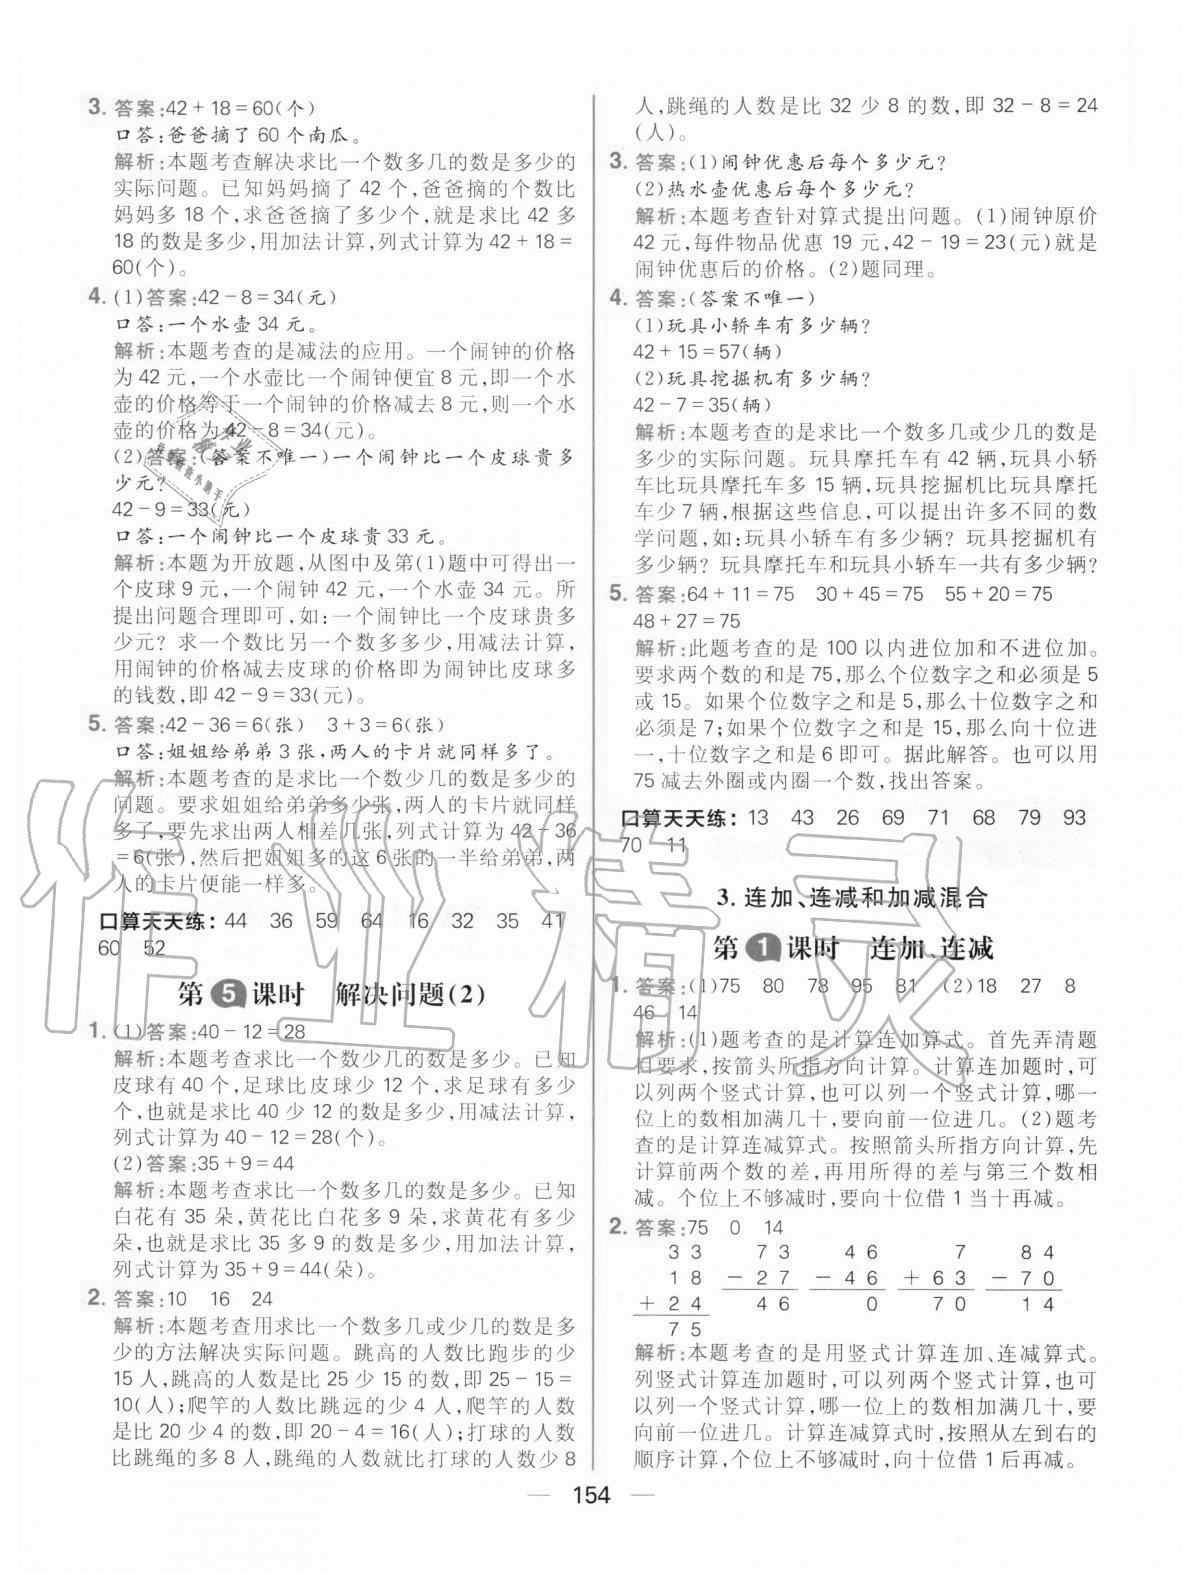 3. 答案:42+18=60(个)
口答:爸爸摘了 60 个南瓜。
解析:本题考查解决求比一个数多几的数是多少的
实际问题。已知妈妈摘了 42 个,爸爸摘的个数比
妈妈多 18 个,求爸爸摘了多少个,就是求比 42 多
18 的数是多少,用加法计算,列式计算为 42+18=
60(个)。
4. (1)答案:42-8=34(元)
口答:一个水壶 34 元。
解析:本题考查的是减法的应用。一个闹钟的价格
为 42 元,一个水壶比一个闹钟便宜 8 元,即一个水
壶的价格等于一个闹钟的价格减去 8 元,则一个水
壶的价格为 42-8=34(元)。
(2)答案:(答案不唯一)一个闹钟比一个皮球贵多
少元?
42-9=33(元)
口答:一个闹钟比一个皮球贵 33 元。
解析:本题为开放题,从图中及第(1)题中可得出一
个皮球 9 元,一个闹钟 42 元,一个水壶 34 元。所
提出问题合理即可,如:一个闹钟比一个皮球贵多
少元? 求一个数比另一个数多多少,用减法计算,
用闹钟的价格减去皮球的价格即为闹钟比皮球多
的钱数,即 42-9=33(元)。
5. 答案:42-36=6(张) 3+3=6(张)
口答:姐姐给弟弟 3 张,两人的卡片就同样多了。
解析:本题考查的是求比一个数少几的数是多少的
问题。要求姐姐给弟弟多少张,两人的卡片就同样
多了,要先求出两人相差几张,列式计算为 42-36
=6(张),然后把姐姐多的这 6 张的一半给弟弟,两
人的卡片便能一样多。
口算天天练: 44 36 59 64 16 32 35 41
60 52
第 5 课时 解决问题(2)
1. (1)答案:40-12=28
解析:本题考查求比一个数少几的数是多少。已知
皮球有 40 个,足球比皮球少 12 个,求足球有多少
个,也就是求比 40 少 12 的数是多少,用减法计算,
列式计算为 40-12=28(个)。
(2)答案:35+9=44
解析:本题考查求比一个数多几的数是多少。已知
白花有 35 朵,黄花比白花多 9 朵,求黄花有多少
朵,也就是求比 35 多 9 的数是多少,用加法计算,
列式计算为 35+9=44(朵)。
2. 答案:10 16 24
解析:本题考查用求比一个数多几或少几的数是多
少的方法解决实际问题。跳高的人数比跑步的少
15 人,跳高的人数是比 25 少 15 的数,即 25-15=
10(人);爬竿的人数比跳远的少 4 人,爬竿的人数
是比 20 少 4 的数,即 20-4=16(人);打球的人数
比跳绳的多 8 人,跳绳的人数就比打球的人数少 8
人,跳绳的人数是比 32 少 8 的数,即 32-8=24
(人)。
3. 答案:(1)闹钟优惠后每个多少元?
(2)热水壶优惠后每个多少元?
解析:本题考查针对算式提出问题。(1)闹钟原价
42 元,每件物品优惠 19 元,42-19=23(元)就是
闹钟优惠后的价格。(2)题同理。
4. 答案:(答案不唯一)
(1)玩具小轿车有多少辆?
42+15=57(辆)
(2)玩具挖掘机有多少辆?
42-7=35(辆)
解析:本题考查的是求比一个数多几或少几的数是
多少的实际问题。玩具摩托车有 42 辆,玩具小轿
车比玩具摩托车多 15 辆,玩具挖掘机比玩具摩托
车少 7 辆,根据这些信息,可以提出许多不同的数
学问题,如:玩具小轿车有多少辆? 玩具挖掘机有
多少辆? 玩具摩托车和玩具小轿车一共有多少辆?
5. 答案:64+11=75 30+45=75 55+20=75
48+27=75
解析:此题考查的是 100 以内进位加和不进位加。
要求两个数的和是 75,那么个位数字之和必须是 5
或 15。如果个位数字之和是 5,那么十位数字之和
必须是 7;如果个位数字之和是 15,那么向十位进
一,十位数字之和是 6 即可。据此解答。也可以用
75 减去外圈或内圈一个数,找出答案。
口算天天练: 13 43 26 69 71 68 79 93
70 11
3. 连加、连减和加减混合
第 1 课时 连加、连减
1. 答案:(1)75 80 78 95 81 (2)18 27 8
46 14
解析:(1)题考查的是计算连加算式。首先弄清题
目要求,按箭头所指方向计算。计算连加题时,可
以列两个竖式计算,也可以列一个竖式计算,哪一
位上的数相加满几十,要向前一位进几。(2)题考
查的是计算连减算式。按照箭头所指方向计算,先
计算前两个数的差,再用所得的差与第三个数相
减。个位上不够减时,要向十位借 1 当十再减。
2. 答案:75 0 14
33 73 46 7 84
18 -27 -46 +63 -70
+24 46 0 70 14
75
解析:本题考查的是用竖式计算连加、连减算式。
列竖式计算连加题时,可以列两个竖式计算,也可
以列一个竖式计算,哪一位上的数相加满几十,要
向前一位进几。计算连减算式时,按照从左到右的
顺序计算,哪一位不够减,向前一位借 1 后再减。
— 154 —
作业精灵